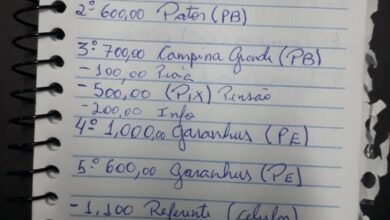 2º 600,00 Patos (PB)
3º 700,00 Campina Grande (PB)
- 100,00
- 500,00 (Pix) Pensão
- 200,00 Info
4º 1,000,00 Garanhus (PE)
5º 600,00 Garanhus (PE)
- 1,100 Referente (celular)